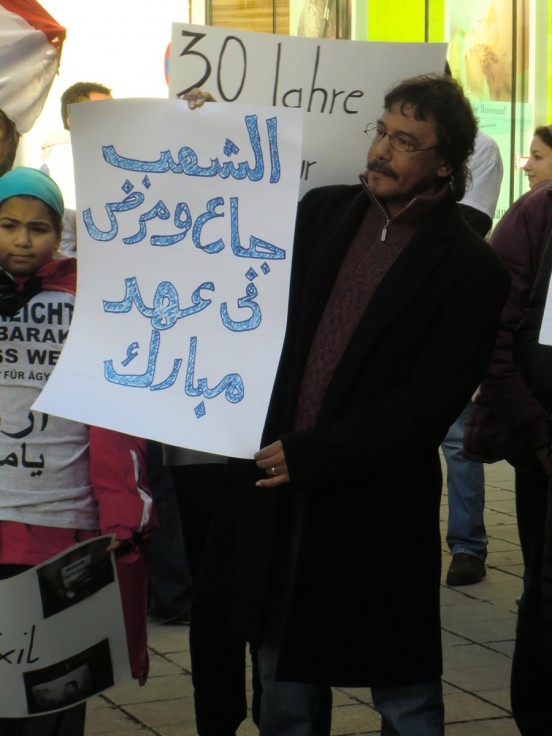 30 Jahre
الشعب
جاع ومرض
فى عهد
مبارك
ZICHT
BARAK
SS WE
FÜR ÄGY